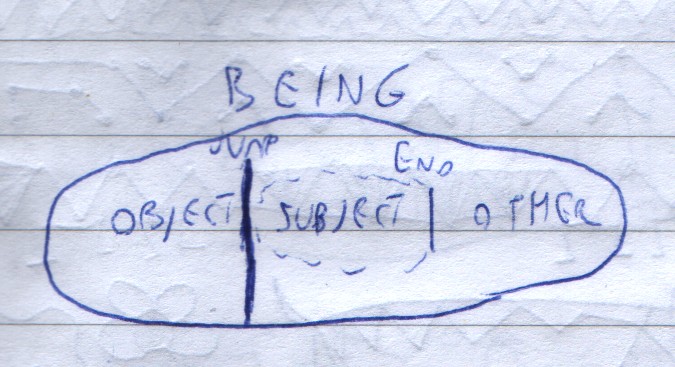 BEING
JUMP END
OBJECT SUBJECT OTHER